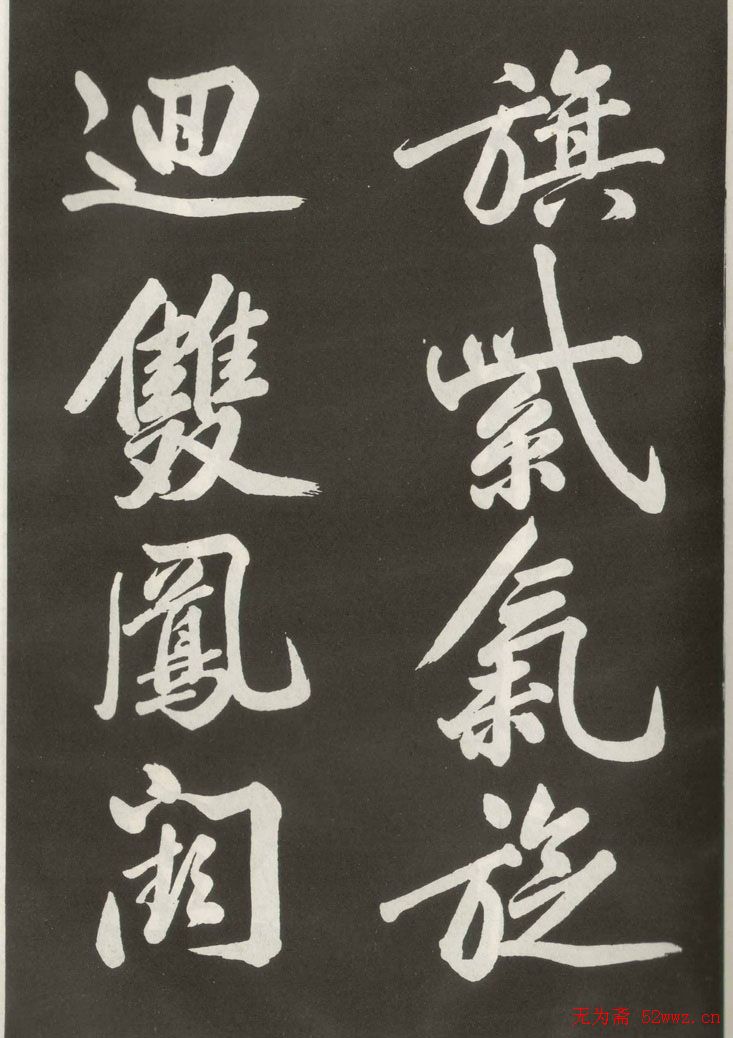 旗紫氣旋
迴雙鳳闕
无为斋 52wwz.cn